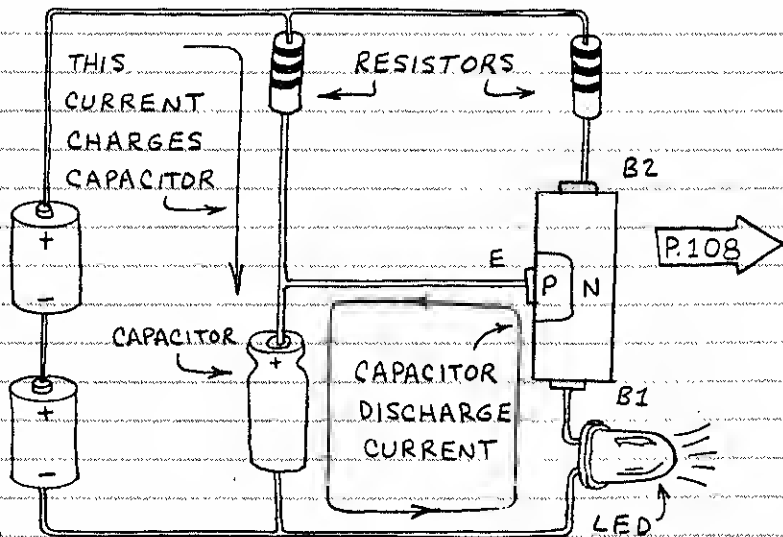 THIS
CURRENT
CHARGES
CAPACITOR
RESISTORS
B2
P.108
E
P N
+
-
+
-
CAPACITOR
+
CAPACITOR
DISCHARGE
CURRENT
B1
LED